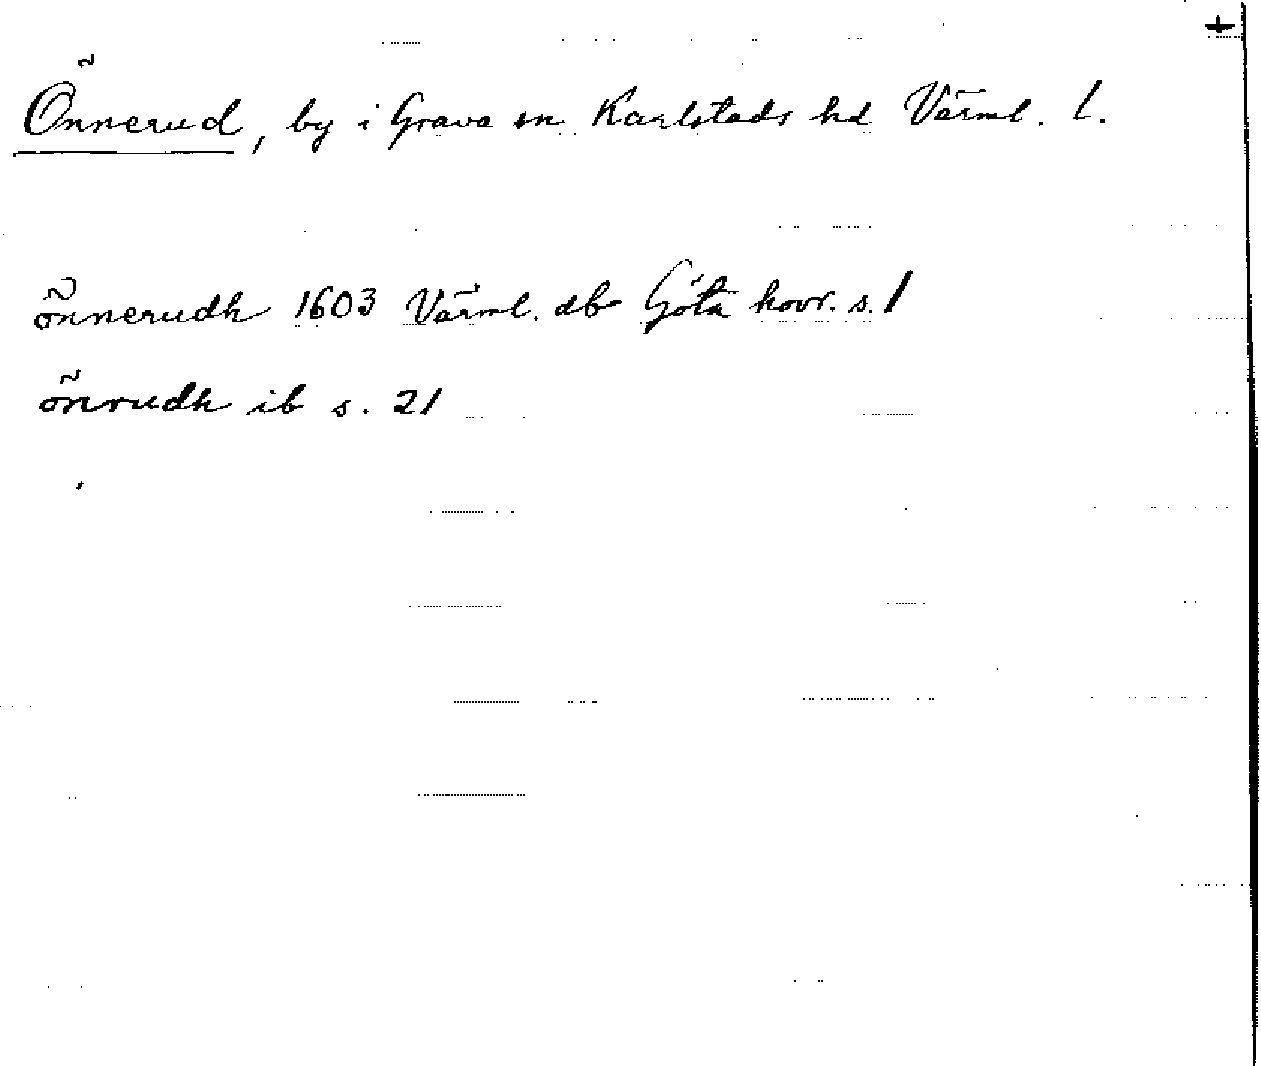 +
Önnerud, by i Grava sn Karlstads hd Värml. l.
önnerudh 1603 Värml. db Göta hovr. s. 1
önrudh ib s. 21